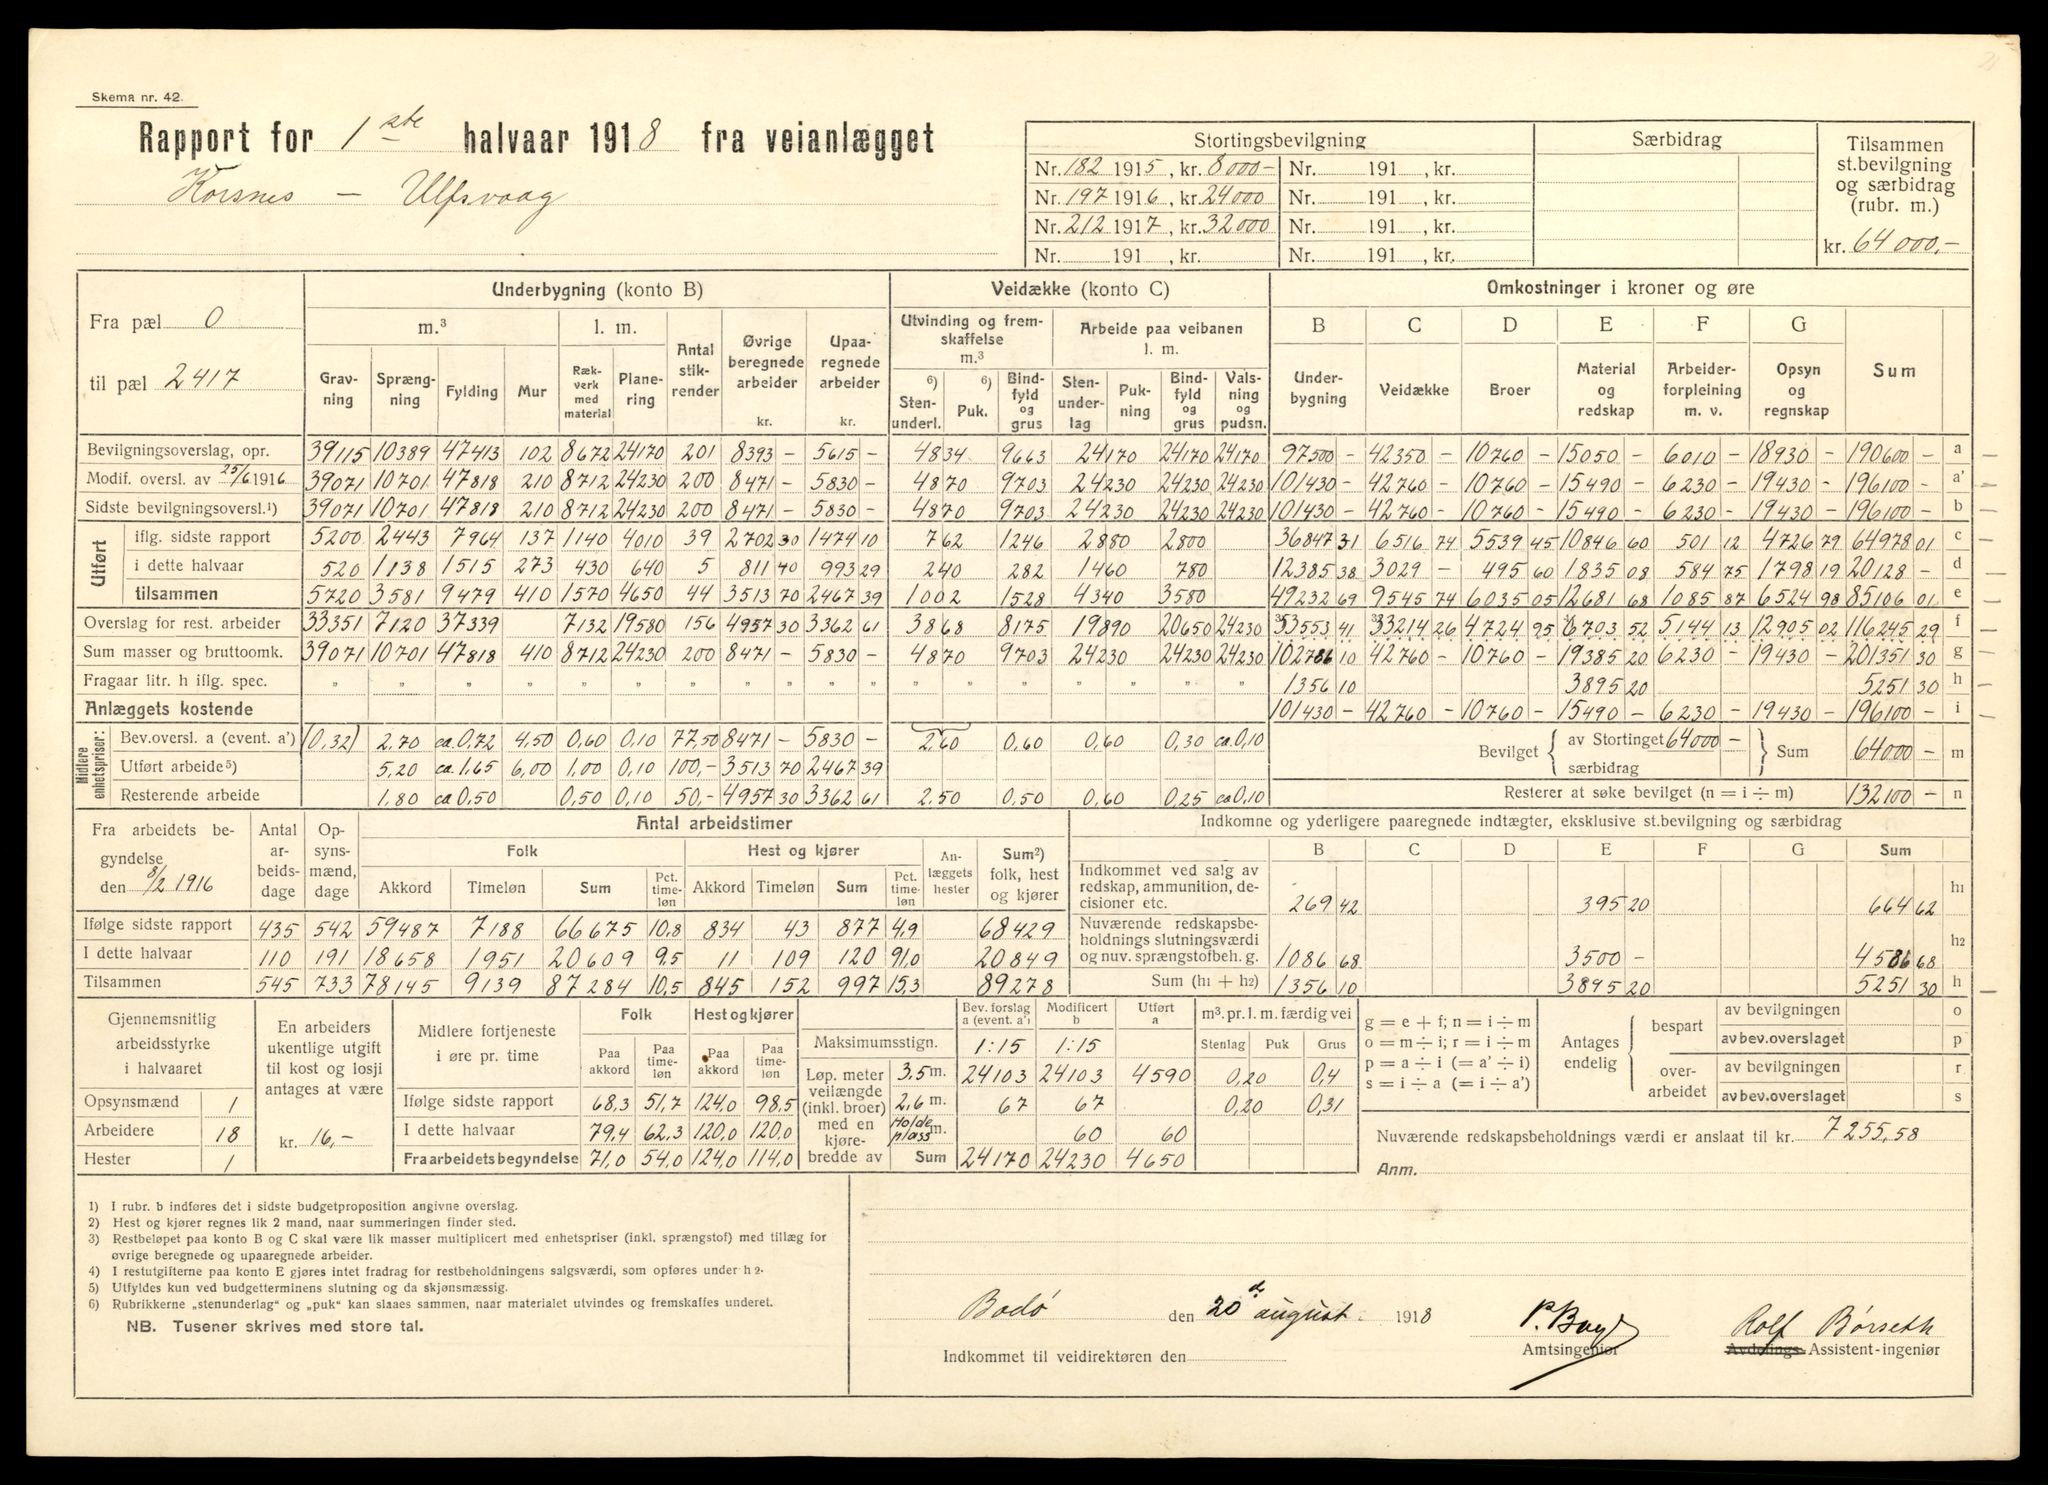 Skema nr. 42.
Rapport for 1ste halvaar 1918 fra veianlægget
Korsnes – Ulfsvaag
Stortingsbevilgning Særbidrag Tilsammen st.bevilgning og særbidrag (rubr. m.)
Nr. 182 1915, kr. 8000- Nr. 191 , kr.
Nr. 197 1916, kr. 24000 Nr. 191 , kr.
Nr. 212 1917, kr. 32000 Nr. 191 , kr.
Nr. 191 , kr. Nr. 191 , kr. kr. 64000,-
Fra pæl 0
til pæl 2417
Underbygning (konto B) Veidække (konto C) Omkostninger i kroner og øre
m.³ l. m. Antal stikrender Øvrige beregnede arbeider kr. Upaaregnede arbeider kr. Utvinding og fremskaffelse m.³ Arbeide paa veibanen l. m. B C D E F G
Gravning Sprængning Fylding Mur Rækverk med material Planering 6) Stenunderl. 6) Puk. Bindfyld og grus Stenunderlag Pukning Bindfyld og grus Valsning og pudsn. Underbygning Veidække Broer Material og redskap Arbeiderforpleining m. v. Opsyn og regnskap Sum
Bevilgningsoverslag, opr. 39115 10389 47413 102 8672 24170 201 8393 – 5615 – 4834 9663 24170 24170 24170 97500 – 42350 – 10760 – 15050 – 6010 – 18930 – 190600 – a
Modif. oversl. av 25/6 1916 39071 10701 47818 210 8712 24230 200 8471 – 5830 – 4870 9703 24230 24230 24230 101430 – 42760 – 10760 – 15490 – 6230 – 19430 – 196100 – a'
Sidste bevilgningsoversl.¹) 39071 10701 47818 210 8712 24230 200 8471 – 5830 – 4870 9703 24230 24230 24230 101430 – 42760 – 10760 – 15490 – 6230 – 19430 – 196100 – b
Utført iflg. sidste rapport 5200 2443 7964 137 1140 4010 39 2702 30 1474 10 762 1246 2880 2800 36847 31 6516 74 5539 45 10846 60 501 12 4726 79 64978 01 c
i dette halvaar 520 1138 1515 273 430 640 5 811 40 993 29 240 282 1460 780 12385 38 3029 – 495 60 1835 08 584 75 1798 19 20128 – d
tilsammen 5720 3581 9479 410 1570 4650 44 3513 70 2467 39 1002 1528 4340 3580 49232 69 9545 74 6035 05 12681 68 1085 87 6524 98 85106 01 e
Overslag for rest. arbeider 33351 7120 37339 7132 19580 156 4957 30 3362 61 3868 8175 19890 20650 24230 53553 41 33214 26 4724 95 6703 52 5144 13 12905 02 116245 29 f
Sum masser og bruttoomk. 39071 10701 47818 410 8712 24230 200 8471 – 5830 – 4870 9703 24230 24230 24230 102786 10 42760 – 10760 – 19385 20 6230 – 19430 – 201351 30 g
Fragaar litr. h iflg. spec. " " " " " " " " " " " " " " 1356 10 3895 20 5251 30 h
Anlæggets kostende 101430 – 42760 – 10760 – 15490 – 6230 – 19430 – 196100 – i
Midlere enhetspriser: Bev.oversl. a (event. a') (0,32) 2.70 ca 0,72 4,50 0,60 0,10 77,50 8471 – 5830 – 2,60 0,60 0,60 0,30 ca 0,10 Bevilget av Stortinget 64000 – Sum 64000 – m
Utført arbeide⁵) 5,20 ca 1,65 6,00 1,00 0,10 100,- 3513 70 2467 39 særbidrag
Resterende arbeide 1,80 ca 0,50 0,50 0,10 50,- 4957 30 3362 61 2,50 0,50 0,60 0,25 ca 0,10 Resterer at søke bevilget (n = i ÷ m) 132100 – n
Fra arbeidets begyndelse den 8/2 1916 Antal arbeidsdage Opsynsmænd, dage Antal arbeidstimer Indkomne og yderligere paaregnede indtægter, eksklusive st.bevilgning og særbidrag
Folk Hest og kjører Anlæggets hester Sum²) folk, hest og kjører B C D E F G Sum
Akkord Timeløn Sum Pct. timeløn Akkord Timeløn Sum Pct. timeløn Indkommet ved salg av redskap, ammunition, decisioner etc. 269 42 395 20 664 62 h1
Ifølge sidste rapport 435 542 59487 7188 66675 10,8 834 43 877 4,9 68429 Nuværende redskapsbeholdnings slutningsværdi
I dette halvaar 110 191 18658 1951 20609 9,5 11 109 120 91,0 20849 og nuv. sprængstofbeh. g. 1086 68 3500 – 4586 68 h2
Tilsammen 545 733 78145 9139 87284 10,5 845 152 997 15,3 89278 Sum (h1 + h2) 1356 10 3895 20 5251 30 h
Gjennemsnitlig arbeidsstyrke i halvaaret En arbeiders ukentlige utgift til kost og losji antages at være kr. 16,-
Opsynsmænd 1
Arbeidere 18
Hester 1
Midlere fortjeneste i øre pr. time Folk Hest og kjører
Paa akkord Paa timeløn Paa akkord Paa timeløn
Ifølge sidste rapport 68,3 51,7 124,0 98,5
I dette halvaar 79,4 62,3 120,0 120,0
Fra arbeidets begyndelse 71,0 54,0 124,0 114,0
Bev. forslag a (event. a') Modificert b Utført a m³. pr. l. m. færdig vei
Maksimumsstign. 1:15 1:15 Stenlag Puk Grus
Løp. meter veilængde (inkl. broer) med en kjørebredde av 3,5 m. 24103 24103 4590 0,20 0,4
2,6 m. 67 67 0,20 0,31
Holdeplass m. 60 60
Sum 24170 24230 4650
g = e + f; n = i ÷ m
o = m ÷ i; r = i ÷ m
p = a ÷ i (= a' ÷ i)
s = i ÷ a (= i ÷ a')
Antages endelig bespart av bevilgningen o
av bev.overslaget p
overarbeidet av bevilgningen r
av bev.overslaget s
Nuværende redskapsbeholdnings værdi er anslaat til kr. 7255,58
Anm.
1) I rubr. b indføres det i sidste budgetproposition angivne overslag.
2) Hest og kjører regnes lik 2 mand, naar summeringen finder sted.
3) Restbeløpet paa konto B og C skal være lik masser multiplicert med enhetspriser (inkl. sprængstof) med tillæg for
øvrige beregnede og upaaregnede arbeider.
4) I restutgifterne paa konto E gjøres intet fradrag for restbeholdningens salgsværdi, som opføres under h 2.
5) Utfyldes kun ved budgetterminens slutning og da skjønsmæssig.
6) Rubrikkerne „stenunderlag" og „puk" kan slaaes sammen, naar materialet utvindes og fremskaffes underet.
NB. Tusener skrives med store tal.
Bodö den 20de august 1918
Rolf Børseth
Amtsingeniør Avdelings- Assistent-ingeniør
Indkommet til veidirektøren den